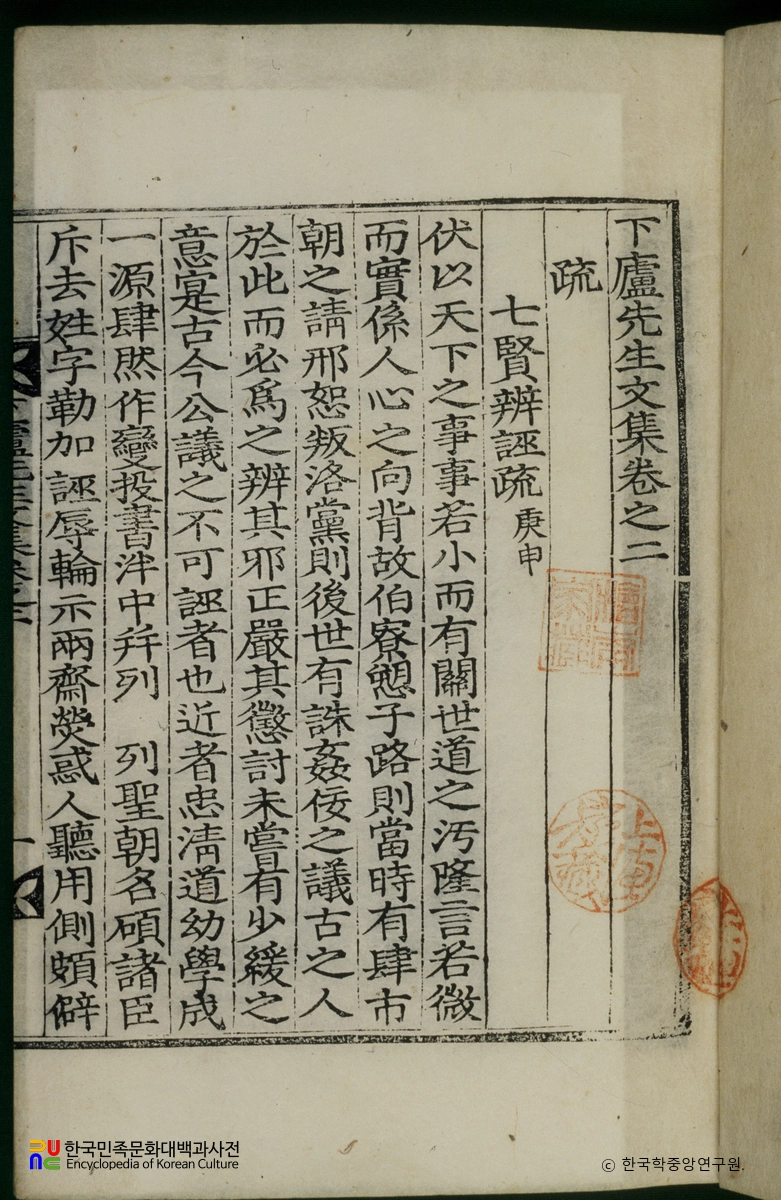 下廬先生文集卷之二
疏
七賢辨誣疏 庚申
伏以天下之事事若小而有關世道之汚隆言若微
而實係人心之向背故伯寮愬子路則當時有肆市
朝之請邢恕叛洛黨則後世有誅姦佞之議古之人
於此而必爲之辨其邪正嚴其懲討未嘗有少緩之
意寔古今公議之不可誣者也近者忠淸道幼學成
一源肆然作變投書泮中幷列 列聖朝名碩諸臣
斥去姓字勒加誣辱輪示兩齋熒惑人聽用側頗僻
한국민족문화대백과사전
Encyclopedia of Korean Culture
© 한국학중앙연구원.